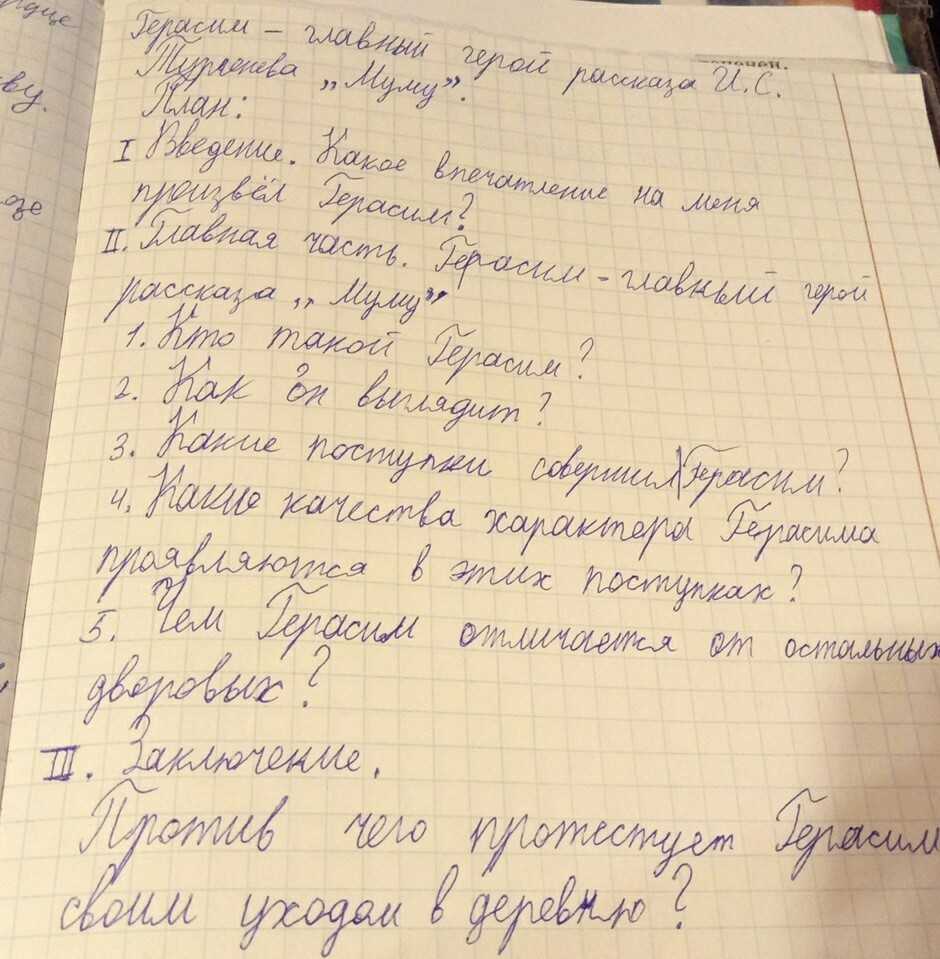 рдце
ву.
Герасим – главный герой рассказа И.С.
Тургенева „Муму".
План:
I Введение. Какое впечатление на меня
произвёл Герасим?
II. Главная часть. Герасим – главный герой
рассказа „Муму"
1. Кто такой Герасим?
2. Как он выглядит?
3. Какие поступки совершил Герасим?
4. Какие качества характера Герасима
проявляются в этих поступках?
5. Чем Герасим отличается от остальных
дворовых?
III. Заключение.
Против чего протестует Герасим
своим уходом в деревню?